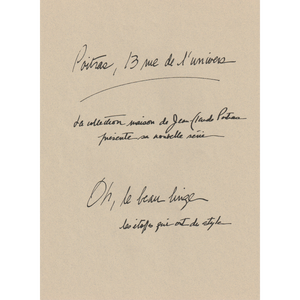 Poitras, 13 rue de l'univers
La collection maison de Jean-Claude Poitras
présente sa nouvelle série
Oh, le beau linge
les étoffes qui ont du style